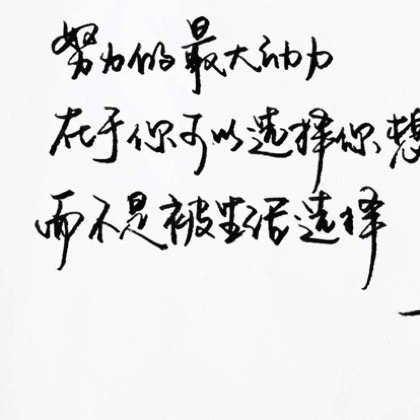 努力的最大动力
在于你可以选择你想
而不是被生活选择